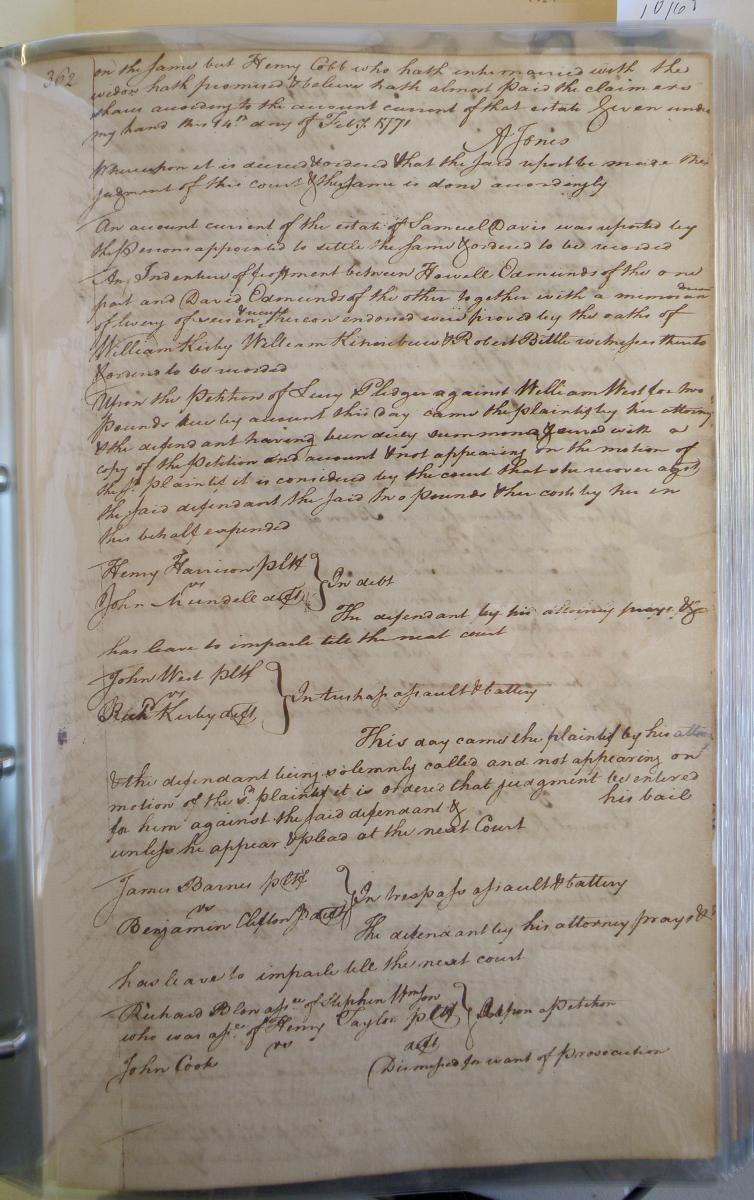 10/63
362
on the same but Henry Cobb who hath intermarried with the
widow hath promised & believe hath almost paid the claimers
share according to the account current of that estate Given under
my hand this 14th day of Feby. 1771
A Jones
Whereupon it is decreed & ordered that the said report be made the
judgment of this court & the same is done accordingly
An account current of the estate of Samuel Davis was reported by
the persons appointed to settle the same & ordered to be recorded
An Indenture of feoffment between Howell Edmunds of the one
part and David Edmunds of the other together with a memoran
dum
of livery of seisin & receipt thereon endorsed were proved by the oaths of
William Kirby William Kitchen & Robert Bittle witnesses thereto
& ordered to be recorded
Upon the Petition of Lucy Pledger against William West for two
Pounds due by account this day came the plaintif by her attorney
& the defendant having been duly summoned & served with a
copy of the Petition and account & not appearing on the motion of
the sd. plaintif it is considered by the court that she recover agst
the said defendant the said two pounds & her costs by her in
this behalf expended
Henry Harrison pltf
vs
John Mundell deft } In debt
The defendant by his attorney prays &
has leave to imparle till the next court
John West pltf
vs
Richd Kirby deft } In treshass assault & battery
This day came the plaintif by his attor
& the defendant being solemnly called and not appearing on
motion of the sd. plaintif it is ordered that judgment be entered
for him against the said defendant & his bail
unless he appear & plead at the next Court
James Barnes pltf
vs
Benjamin Clifton deft } In trespass assault & battery
The defendant by his attorney prays &
has leave to imparle till the next court
Richard Blow assee of Stephen
who was asse. of Henry Taylor pltf } Upon a Petition
vs
John Cook deft
Dismissed for want of prosecution